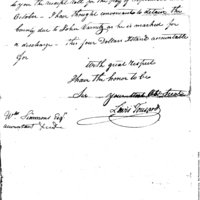 to you the receipt roll for the pay of
October - I have thought convenient to detain the
bounty due to John as he is marked for
a discharge - this four Dollars I stand accountable
for
With great respect
I have the honor to be
Sir your most Obt.
Lewis Tousard
Wm Simmons Esqr
accountant